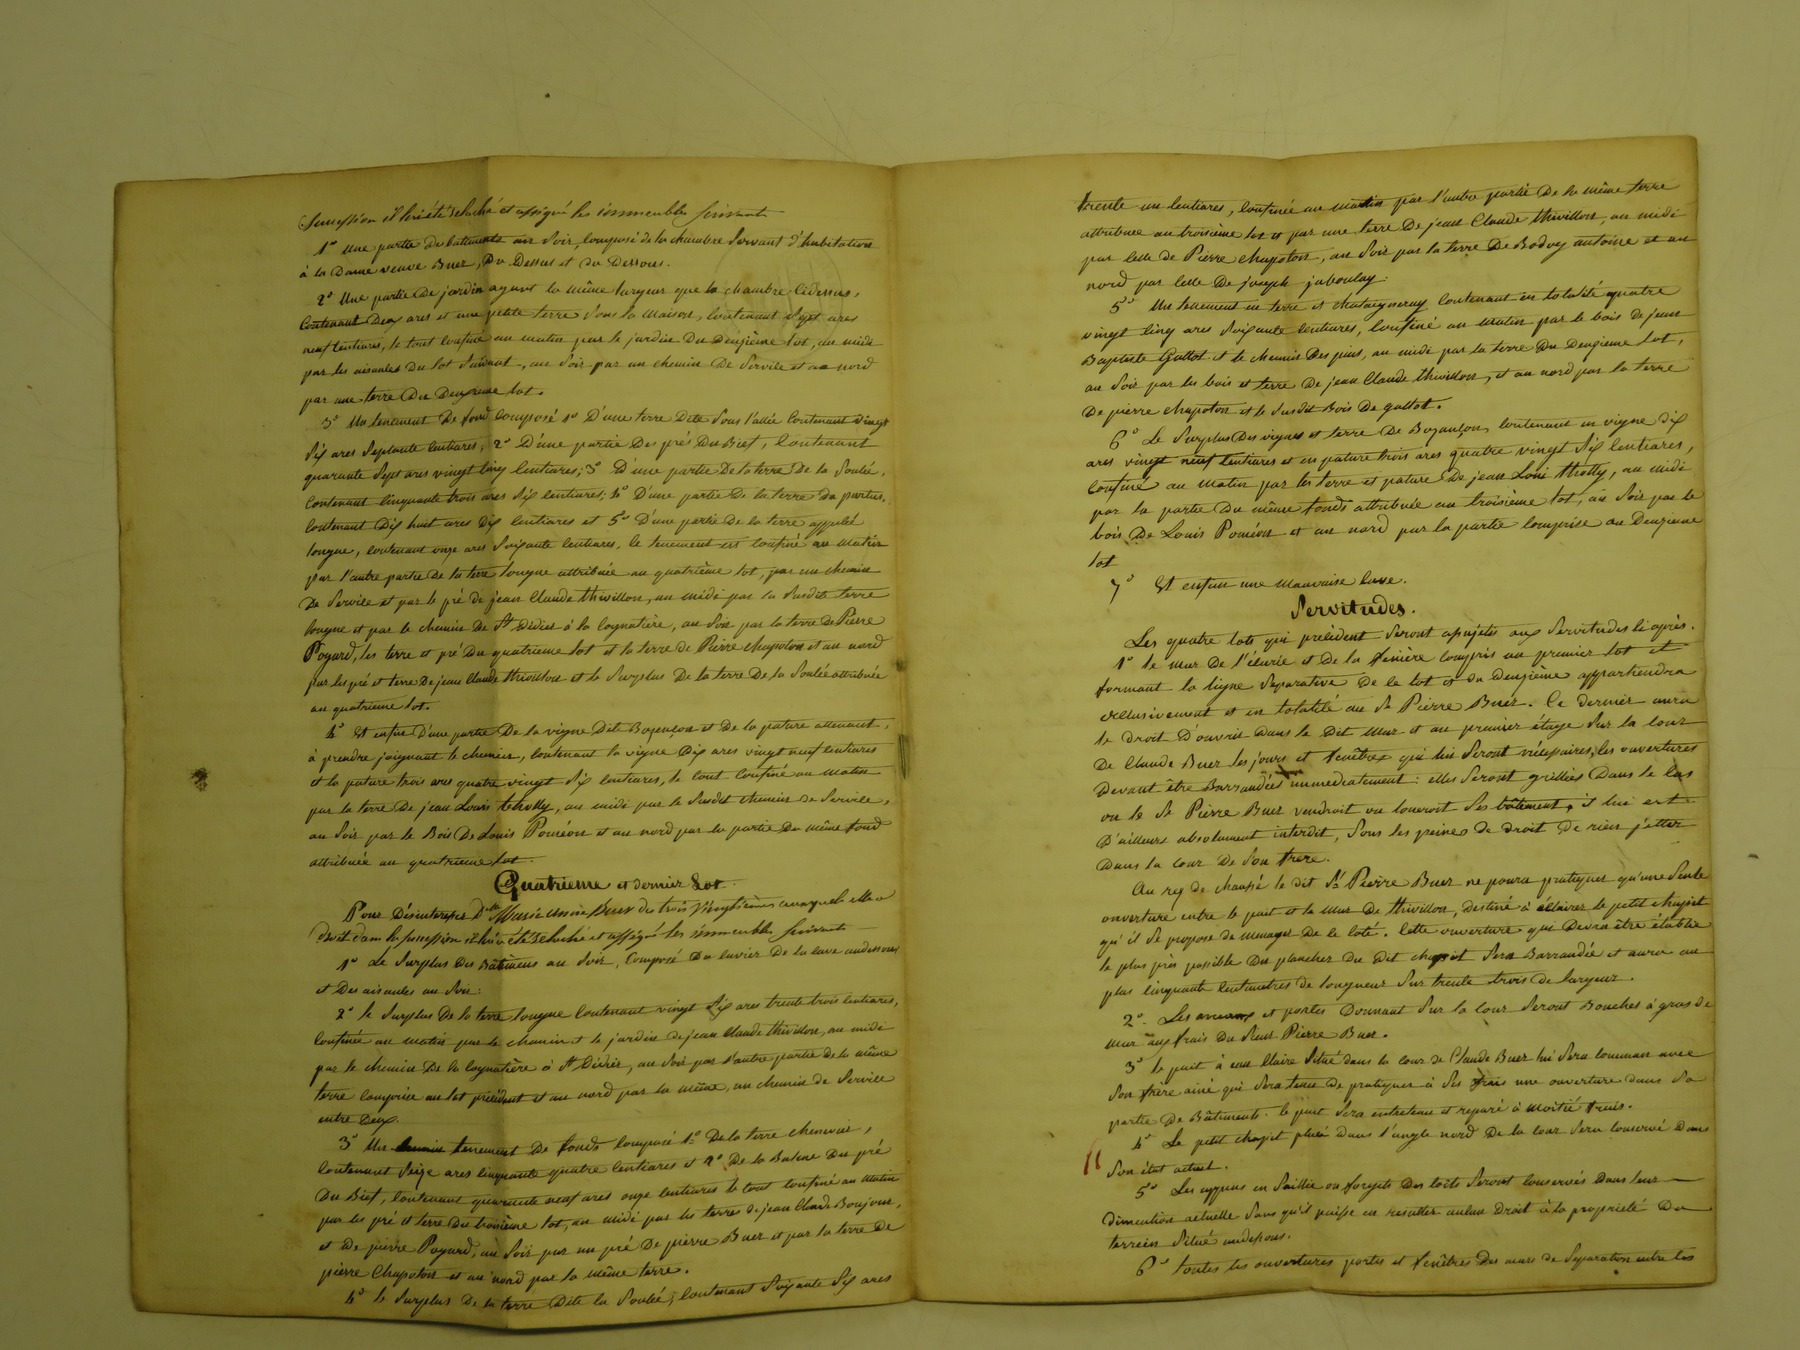 succession il lui a été relaché et assigné les immeubles suivants
1º Une partie des batiments au soir, composé de la chambre servant d'habitation
à la Dame veuve Buer, du dessus et du dessous.
2º Une partie de jardin ayant la même largeur que la chambre cidessus,
contenant deux ares et une petite terre sous la maison, contenant sept ares
neuf centiares, le tout confiné au matin par le jardin du deuxième lot, au midi
par les aisances du lot suivant, au soir par un chemin de service et au nord
par une terre du deuxieme lot.
3º Un tenement de fond composé 1º D'une terre dite sous l'allée contenant vingt
six ares septante centiares, 2º D'une partie des prés du Bief, contenant
quarante sept ares vingt cinq centiares; 3º D'une partie de la terre de la Soulée,
contenant cinquante trois ares six centiares; 4º D'une partie de la terre du pertus,
contenant dix huit ares dix centiares et 5º D'une partie de la terre appelée
longue, contenant onze ares soixante centiares, le tenement est confiné au matin
par l'autre partie de la terre longue attribuée au quatrième lot, par un chemin
de service et par le pré de jean Claude thivillon, au midi par la susdite terre
longue et par le chemin de St Didier à la Cognatière, au soir par la terre de Pierre
Poyard, les terre et pré du quatrieme lot et la terre de Pierre chapoton et au nord
par les pré et terre de jean Claude thivillon et le surplus de la terre de la Soulée attribuée
au quatrieme lot.
4º Et enfin d'une partie de la vigne dit Bozançon et de la pature attenant,
à prendre joignant le chemin, contenant la vigne dix ares vingt neuf centiares
et la pature trois ares quatre vingt six centiares, le tout confiné au matin
par la terre de jean Louis tholly, au midi par le susdit chemin de service,
au soir par le Bois de Louis Poméon et au nord par la partie du même fond
attribuée au quatrieme lot.
Quatrieme et dernier Lot.
Pour désinteresser Dlle Marie Buer des trois vingtièmes auxquels elle a
droit dans la succession il lui a été relaché et assigné les immeubles suivant
1º Le surplus des Bâtimens au soir, composé du cuvier de la cave audessous
et des aisances au soir.
2º le surplus de la terre longue contenant vingt six ares trente trois centiares,
confinée au matin par le chemin et le jardin de jean Claude thivillon, au midi
par le chemin de la Cognatière à St Didier, au soir par l'autre partie de la même
terre comprise au lot précédent et au nord par la même, un chemin de service
entre deux.
3º Un tenement de fonds composé 1º De la terre chenevier,
contenant seize ares cinquante quatre centiares et 2º De la Balme du pré
du Bief, contenant quarante neuf ares onze centiares le tout confiné au matin
par les pré et terre du troisième lot, au midi par les terres de jean Claude Bonjour,
et de pierre Poyard, au soir par un pré de pierre Buer et par la terre de
pierre Chapoton et au nord par la même terre.
4º le surplus de la terre dite la Soulée, contenant soixante six ares
trente un centiares, confinée au matin par l'autre partie de la même terre
attribuée au troisième lot et par une terre de jean Claude thivillon, au midi
par celle de Pierre Chapoton, au soir par la terre de Bodoy antoine et au
nord par celle de joseph jaboulay.
5º Un tenement en terre et chataigneray contenant en totalité quatre
vingt cinq ares soixante centiares, confiné au matin par le bois de jean
Baptiste Gattot et le chemin des pins, au midi par la terre du deuxieme lot,
au soir par les bois et terre de jean Claude thivillon, et au nord par la terre
de pierre chapoton et le susdit Bois de gattot.
6º Le surplus des vignes et terre de Bozançon, contenant en vigne dix
ares vingt neuf centiares et en pature trois ares quatre vingt six centiares,
confiné au matin par les terre et pature de jean Loui tholly, au midi
par la partie du même fonds attribuée au troisième lot, au soir par le
bois de Louis Poméon et au nord par la partie comprise au deuxieme
lot
7º Et enfin une mauvaise cuve.
Servitudes.
Les quatre lots qui précèdent seront assujetis aux servitudes ci après.
1º le mur de l'écurie et de la fenière compris au premier lot et
formant la ligne separative de ce lot et du deuxième appartiendra
exclusivement et en totalité au Sr Pierre Buer. Ce dernier aura
le droit d'ouvrir dans le dit mur et au premier étage sur la cour
de Claude Buer les jours et fenêtres qui lui seront nécessaires, les ouvertures
devant être Barraudées immediatement: elles seront grillées dans le cas
ou le Sr Pierre Buer vendroit ou loueroit ses bâtiment, il lui est
d'ailleurs absolument interdit, sous les peines de droit de rien jetter
dans la cour de son frere.
Au rez de chaussé le dit Sr Pierre Buer ne poura pratiquer qu'une seule
ouverture entre le puit et le mur de thivillon, destiné à éclairer le petit chapit
qu'il se propose de menager de ce coté. Cette ouverture qui devra être établie
le plus près possible du plancher du dit chapit sera Barraudée et aura au
plus cinquante centimetres de longueur sur trente trois de largeur.
2º Les et portes donnant sur la cour seront Bouchés à gros de
mur aux frais du sieur Pierre Buer.
3º le puit à eau claire situé dans la cour de Claude Buer lui sera commun avec
son frère ainé qui sera tenu de pratiquer à ses frais une ouverture dans sa
partie de Bâtiments. le puit sera entretenu et reparé à moitié frais.
4º Le petit chapit placé dans l'angle nord de la cour sera conservé dans
son état actuel.
5º Les appens en saillie ou forjets des toits seront conservés dans leur
dimention actuelle sans qu'il puisse en resulter aucun droit à la propriété du
terrein situé audessous.
6º toutes les ouvertures portes et fenêtres des murs de séparation entre les